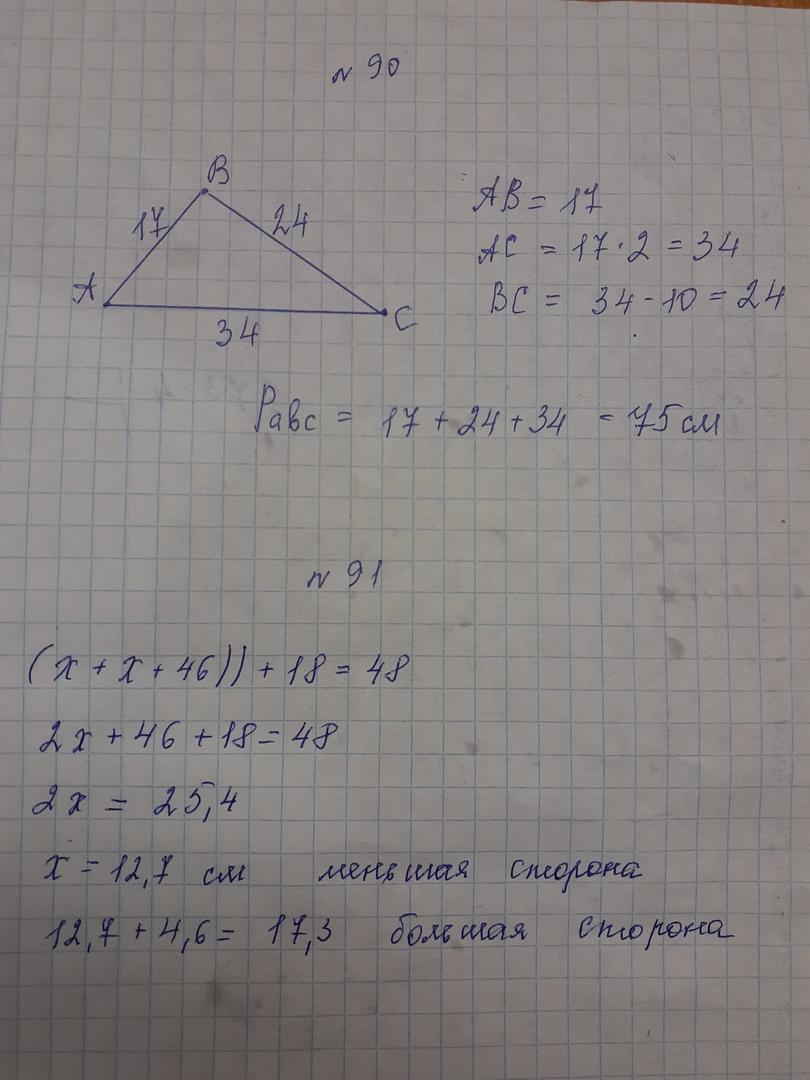 n 90
B
17
24
A
34
C
AB = 17
AC = 17·2 = 34
BC = 34 - 10 = 24
Pавс = 17 + 24 + 34 = 75 см
n 91
(x + x + 46)) + 18 = 48
2x + 46 + 18 = 48
2x = 25,4
x = 12,7 см меньшая сторона
12,7 + 4,6 = 17,3 большая сторона